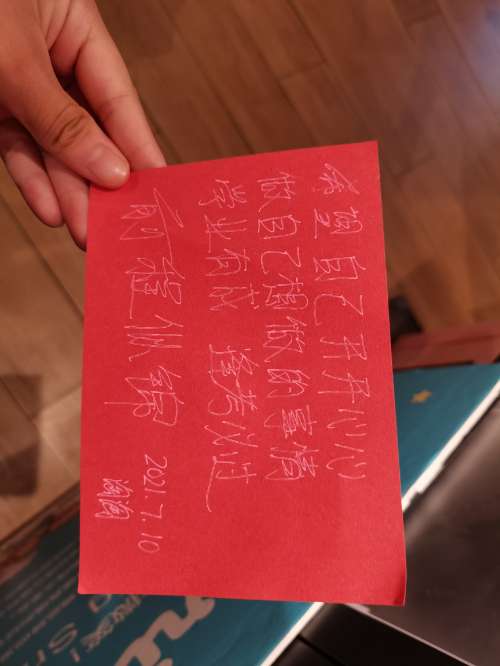 希望自己开开心心
做自己想做的事情
学业有成 逢考必过
前程似锦
2021.7.10